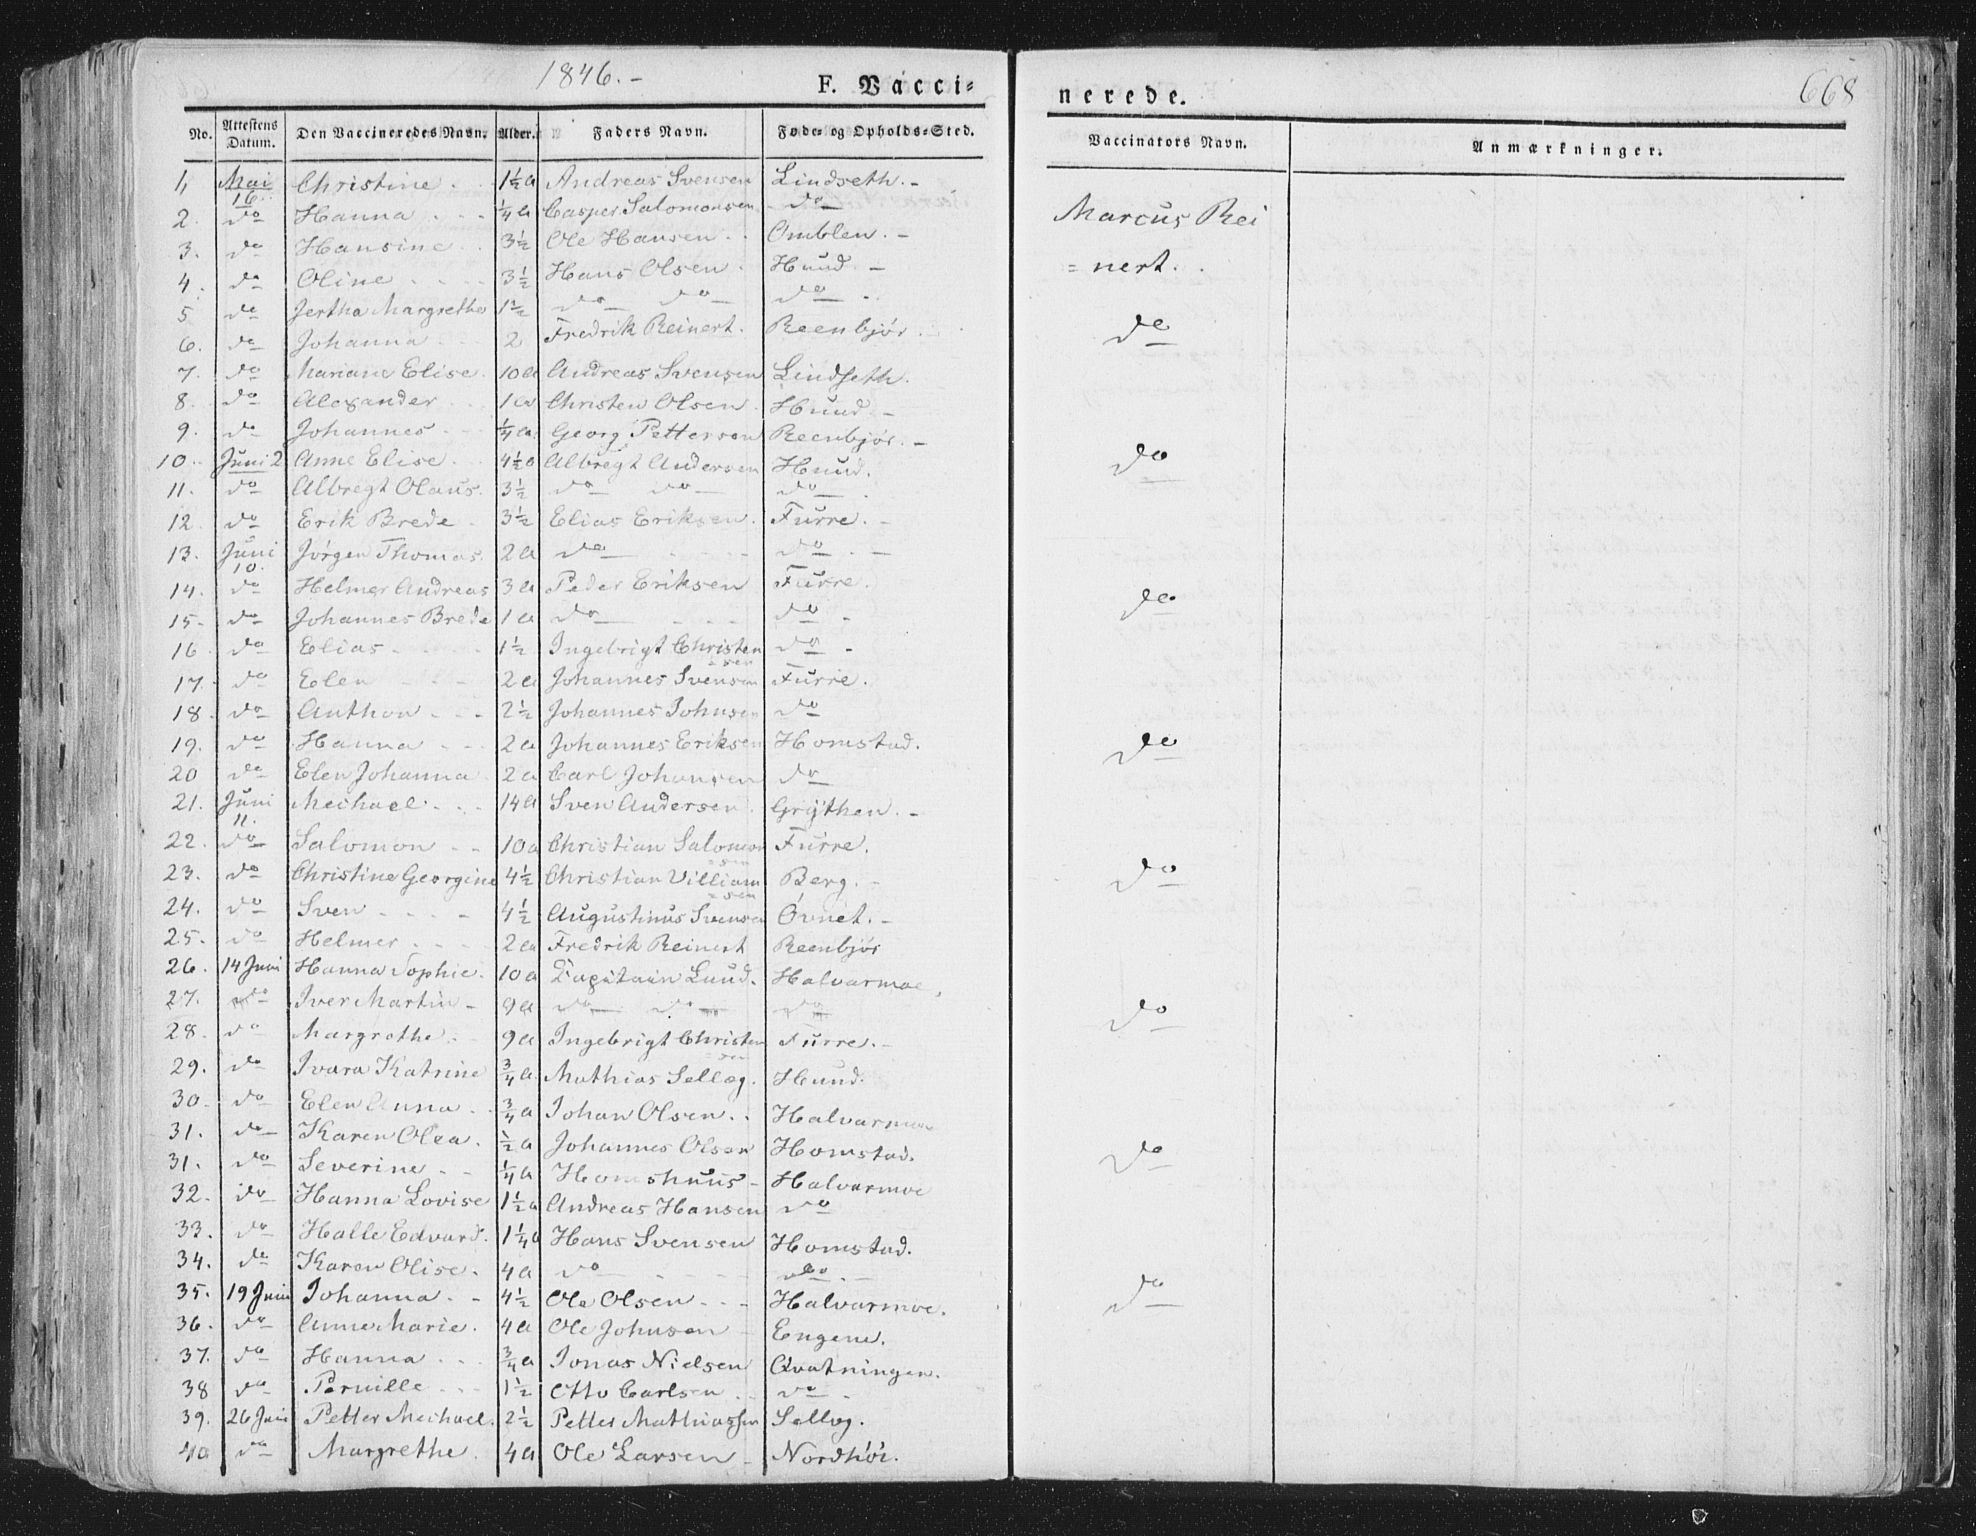 1846.-
F. Vacci-
nerede.
668
No. Attestens Datum. Den Vaccineredes Navn. Alder. Faders Navn. Føde- og Opholds-Sted. Vaccinators Navn. Anmærkninger.
1, Mai 16. Christine 1½ a Andreas Svensen Lindseth.-
2. do Hanna ¼ a Casper Salomonsen do
Marcus Rei
3. do Hansine 3½ Ole Hansen Omblen.-
4. do Oline 3½ Hans Olsen Hund.-
=nert.
5 do Jertha Margrethe 1½ do do do
6. do Johanna 2 Fredrik Reinert. Reenbjør. do
7. do Mariane Elise. 10 a Andreas Svensen Lindseth.
8. do Alexander 1 a Christen Olsen Hund.-
9. do Johannes ¼ a Georg Pettersen Reenbjør.-
10. Juni 2 Anne Elise 4½ a Albregt Andersen Hund. do
11. do Albregt Olaus. 3½ do do do
12 do Erik Brede 3½ Elias Eriksen. Furre.-
13. Juni 10. Jørgen Thomas. 2 a do do.-
14. do Helmer Andreas 3 a Peder Eriksen Furre. do
15- do Johannes Brede 1 a do do -
16 do Elias 1½ Ingebrigt Christen=sen do -
17. do Elen 2 a Johannes Svensen Furre.
18. do Anthon 2½ Johannes Johnsen do
19. do Hanna 2 a Johannes Eriksen Homstad. do
20 do Elen Johanna 2 a Carl Johansen do
21. Juni 11. Meichael 14 a Sven Andersen Grythen.-
22. do Salomon 10 a Christian Salomon=sen Furre.
23. do Christine Georgine 4½ Christian Villiam=sen Berg.- do
24. do Sven 4½ Augustinus Svensen Øvnet.-
25. do Helmer 2 a Fredrik Reinert Reenbjør
26. 14 Juni Hanna Sophie. 10 a Capitain Lund. Halvarmoe,
27. do Iver Martin - 9 a do do do do
28. do Margrethe 9 a Ingebrigt Christen=sen Furre.-
29. do Ivara Katrine ¾ a Mathias Sellæg. Hund.
30. do Elen Anna ¾ a Johan Olsen. Halvarmoe
31. do Karen Olea. ½ a Johannes Olsen Homstad.
31. do Severine ¼ a Homshuus - Halvarmoe do
32. do Hanna Lovise 1½ a Andreas Hansen do
33. do Halle Edvard. 1¼ a Hans Svensen Homstad.
34. do Karen Olise. 4 a do do.-
35. 19 Juni Johanna 4½ Ole Olsen Halvarmoe. do
36. do Anne Marie. 4 a Ole Johnsen Engene.
37. do Hanna ¾ a Jonas Nielsen Qvatningen.
38 do Pernille 1½ Otto Carlsen do -
39. 26 Juni Petter Meichael. 2½ Petter Mathiassen Sellæg.
40 do Margrethe 4 a Ole Larsen - Nordhöi.